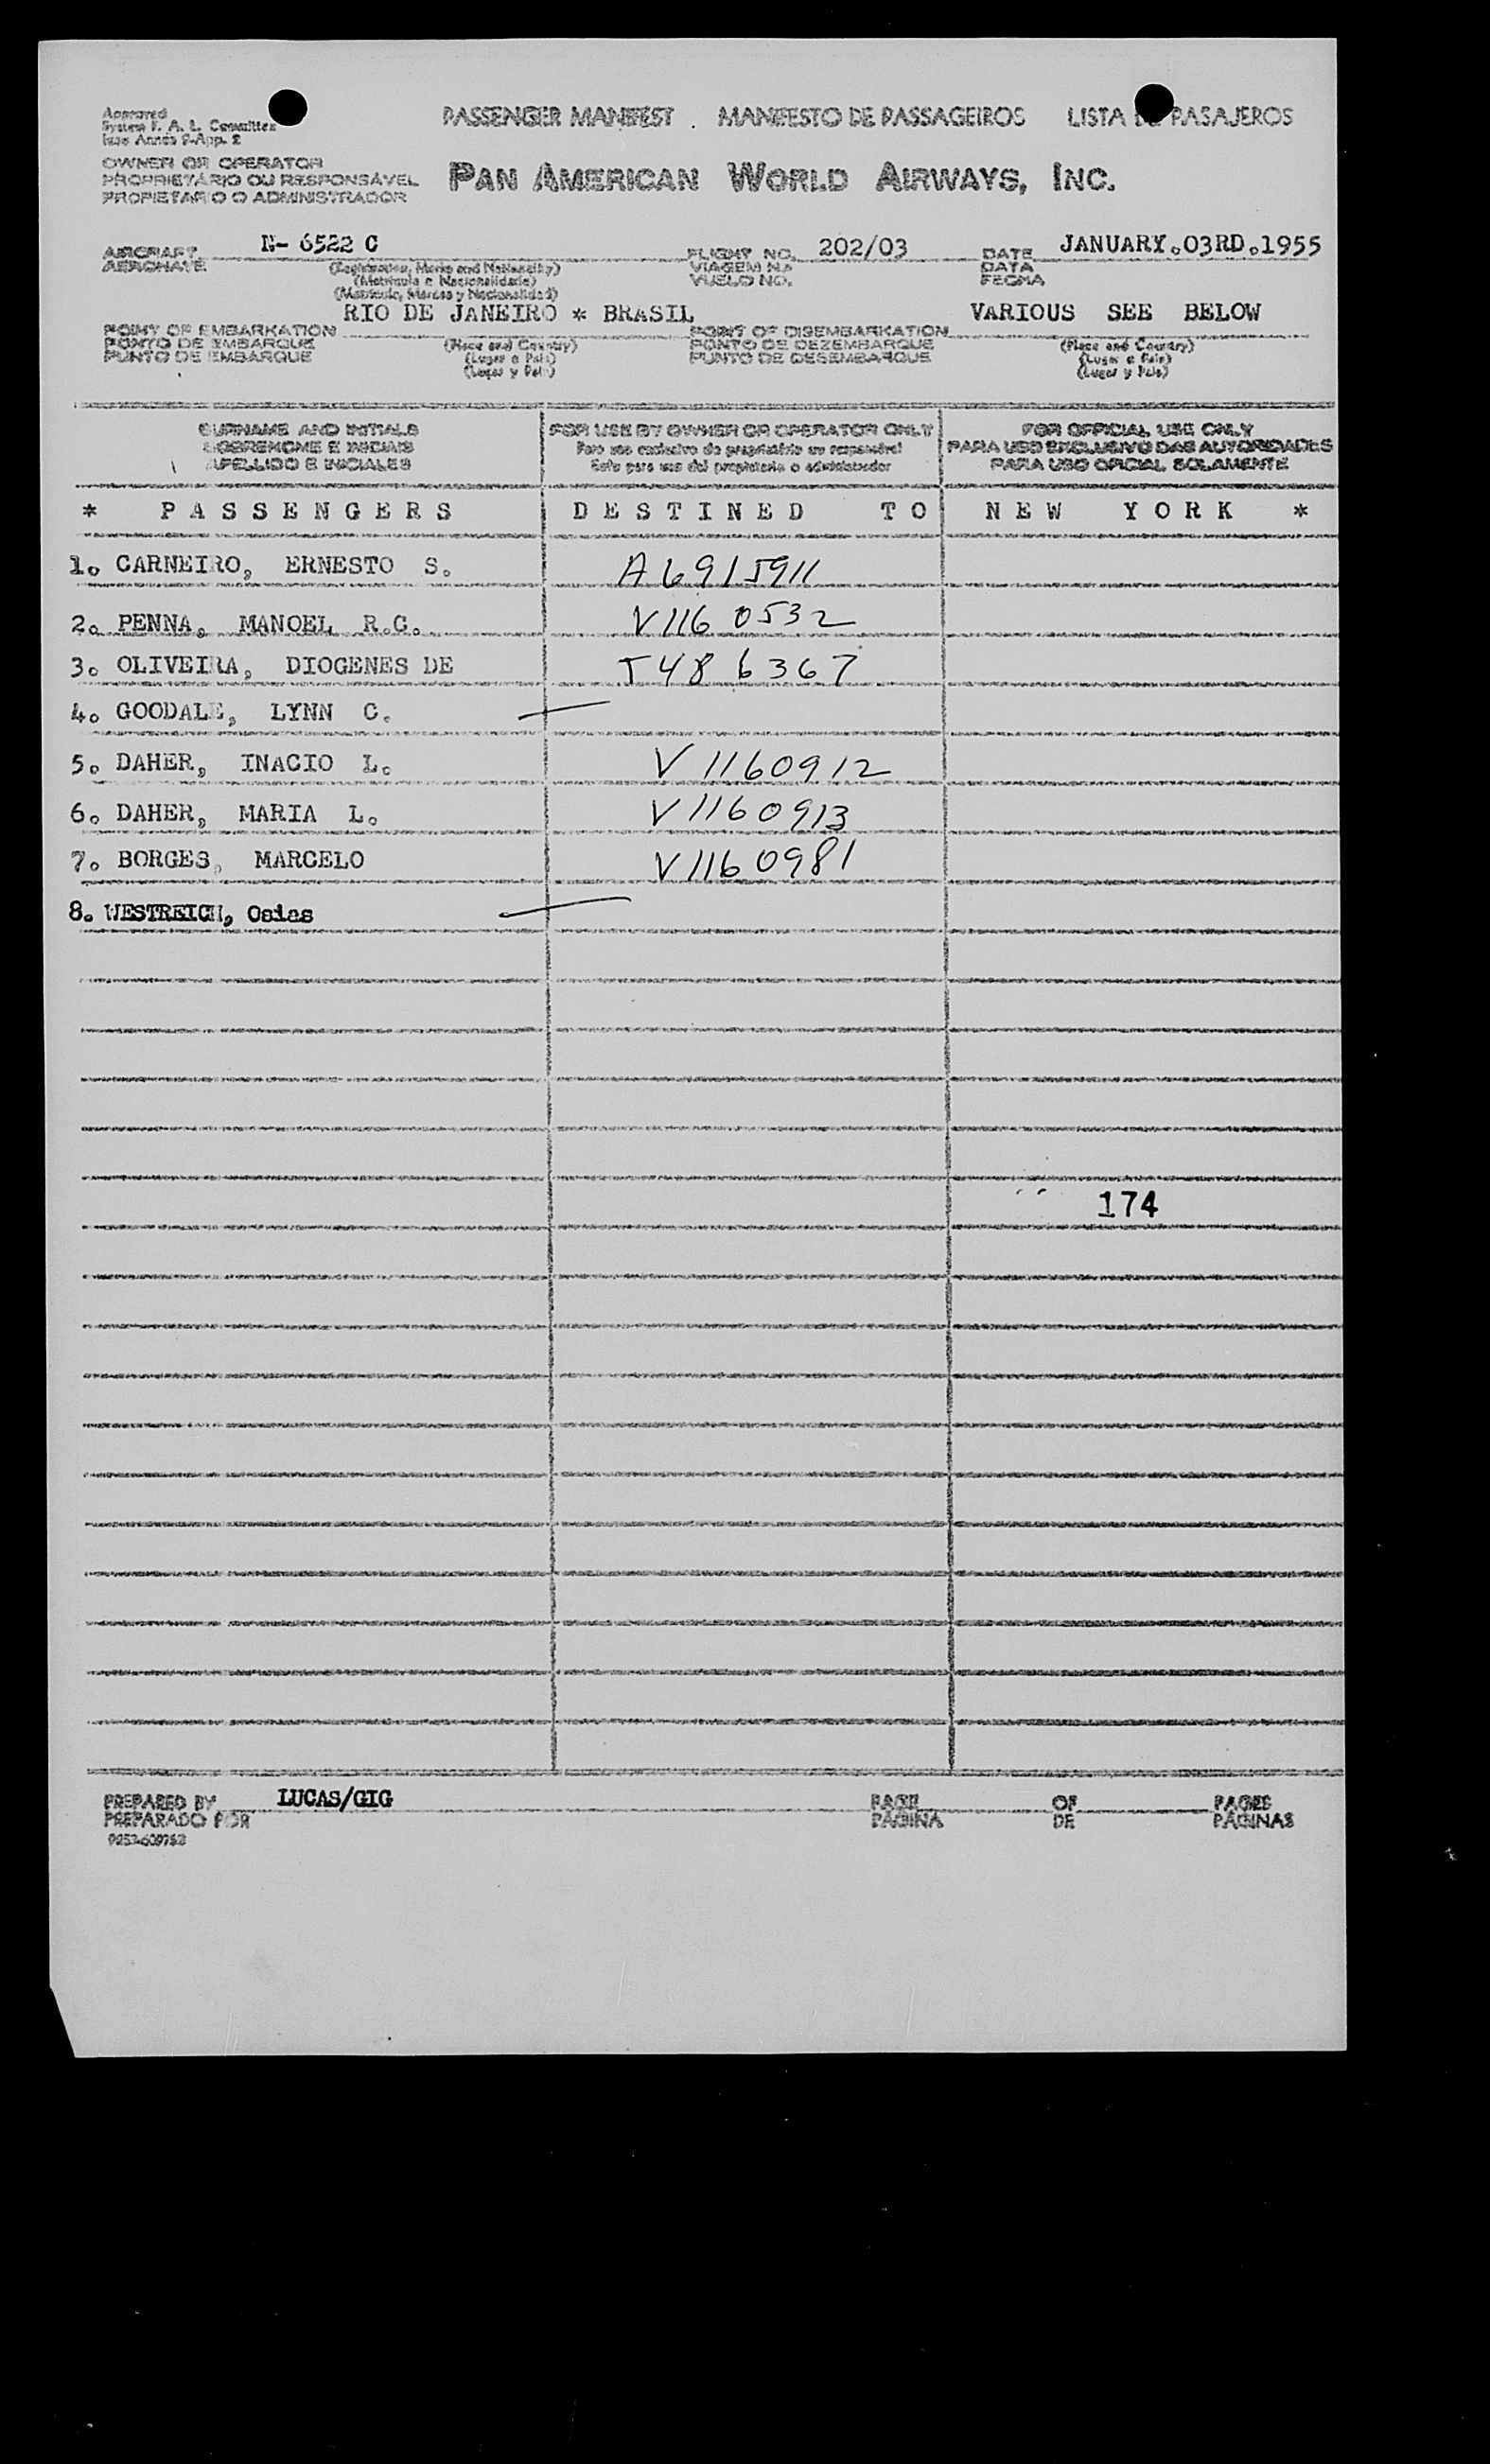 Approved
System F. A. L. Committee
Icao Annex 9-App. 2
PASSENGER MANIFEST . MANIFESTO DE PASSAGEIROS LISTA DE PASAJEROS
OWNER OR OPERATOR
PROPRIETÁRIO OU RESPONSÁVEL
PROPIETARIO O ADMINISTRADOR
PAN AMERICAN WORLD AIRWAYS, INC.
AIRCRAFT N- 6522 C FLIGHT NO. 202/03 DATE JANUARY.03RD.1955
AERONAVE (Registration, Marks and Nationality) VIAGEM N.º DATA
(Matrícula e Nacionalidade) VUELO NO. FECHA
(Matrícula, Marcas y Nacionalidad)
RIO DE JANEIRO * BRASIL VARIOUS SEE BELOW
POINT OF EMBARKATION POINT OF DISEMBARKATION
PONTO DE EMBARQUE (Place and Country) PONTO DE DEZEMBARQUE (Place and Country)
PUNTO DE EMBARQUE (Lugar e País) PUNTO DE DESEMBARQUE (Lugar e País)
(Lugar y País) (Lugar y País)
SURNAME AND INITIALS FOR USE BY OWNER OR OPERATOR ONLY FOR OFFICIAL USE ONLY
SOBRENOME E INICIAIS Para uso exclusivo do proprietário ou responsável PARA USO EXCLUSIVO DAS AUTORIDADES
APELLIDO E INICIALES Solo para uso del propietario o administrador PARA USO OFICIAL SOLAMENTE
* PASSENGERS DESTINED TO NEW YORK *
1. CARNEIRO, ERNESTO S. A6915911
2. PENNA, MANOEL R.C. V1160532
3. OLIVEIRA, DIOGENES DE T486367
4. GOODALE, LYNN C. —
5. DAHER, INACIO L. V1160912
6. DAHER, MARIA L. V1160913
7. BORGES, MARCELO V1160981
8. WESTREICH, Osias —
174
PREPARED BY LUCAS/GIG PAGE OF PAGES
PREPARADO POR PÁGINA DE PÁGINAS